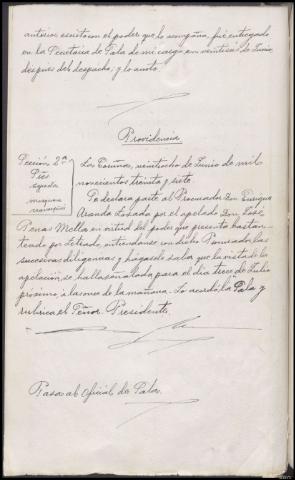 anterior escrito con el poder que lo acompaña, fué entregado
en la Secretaría de Sala de mi cargo en veintiseis de Junio,
después del despacho; y lo anoto.
Providencia
Sección 2ª
Sres
La Coruña, veintiocho de Junio de mil
novecientos treinta y siete
Se declara parte al Procurador Don Enrique
Aranda Losada por el apelado Don José
Penas Mella en virtud del poder que presenta bastan-
teado por Letrado, entiendanse con dicho Procurador las
sucesivas diligencias y hágasele saber que la vista de la
apelación, se halla señalada para el dia trece de Julio
próximo á las once de la mañana. Lo acordó la Sala y
rubrica el Señor Presidente.
Pasa al Oficial de Sala.